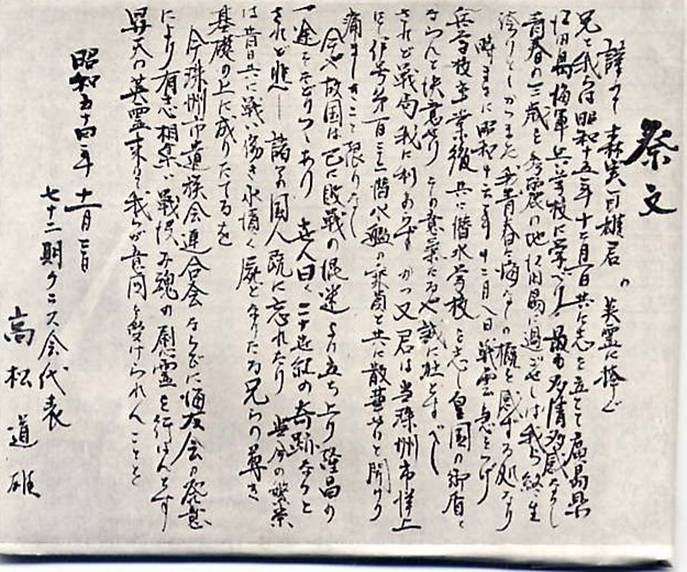 祭文
謹みて 森実可雄君の英霊に捧ぐ
兄と我らは昭和十五年十二月一日共に志を立てて広島県
江田島海軍兵学校に学べり 最も多情多感なりし
青春の三歳を 秀麗の地江田島に過ごせしは我ら終生
誇りとしかつまた我青春に悔なしの概を感ずる処なり
時まさに昭和十六年十二月八日戦雲 急をつげ
兵学校卒業後 共に潜水学校を志し皇国の御盾と
ならんと決意せり その意気たるや誠に壮とすべし
されど戦局我に利あらず かつ又 君は当珠州市洋上
にて伊号第百二十二潜水艦の乗員と共に散華せりと聞けり
痛ましきこと限りなし
今や故国は已に敗戦の混迷より立ち上り隆昌の
一途をたどりつつあり 世人曰く 二十世紀の奇跡なりと
されど悲し 諸々の国人 既に忘れたり 当今の繁栄
は昔日共に戦い傷き水漬く屍となりたる兄らの尊き
基礎の上に成りたてるを
今珠州市遺族会連合会ならびに海友会の発意
により有志相集い戦没み魂の慰霊を行はんとす
昇天の英霊来りて我らが意向を受けられんことを
昭和五十四年 十一月 三日
七十二期クラス会代表
高松道雄